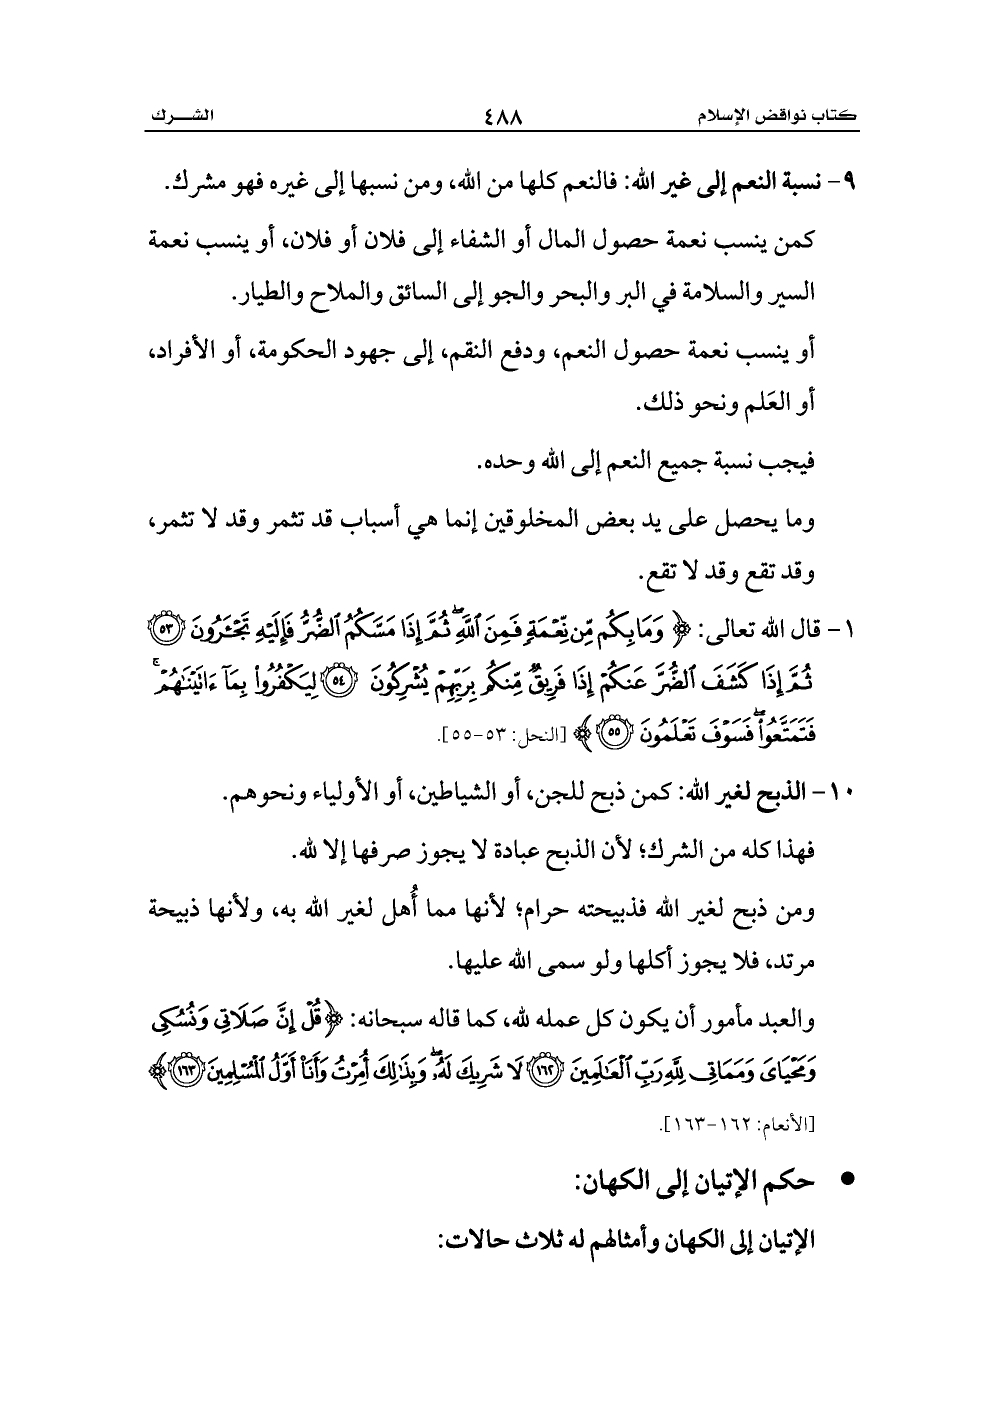 كتاب نواقض الإسلام ٤٨٨ الشــــرك
٩- نسبة النعم إلى غير الله: فالنعم كلها من الله، ومن نسبها إلى غيره فهو مشرك.
كمن ينسب نعمة حصول المال أو الشفاء إلى فلان أو فلان، أو ينسب نعمة
السير والسلامة في البر والبحر والجو إلى السائق والملاح والطيار.
أو ينسب نعمة حصول النعم، ودفع النقم، إلى جهود الحكومة، أو الأفراد،
أو العَلم ونحو ذلك.
فيجب نسبة جميع النعم إلى الله وحده.
وما يحصل على يد بعض المخلوقين إنما هي أسباب قد تثمر وقد لا تثمر،
وقد تقع وقد لا تقع.
١- قال الله تعالى: ﴿ وَمَا بِكُم مِّن نِّعْمَةٍ فَمِنَ ٱللَّهِ ۖ ثُمَّ إِذَا مَسَّكُمُ ٱلضُّرُّ فَإِلَيْهِ تَجْـَٔرُونَ ٥٣
ثُمَّ إِذَا كَشَفَ ٱلضُّرَّ عَنكُمْ إِذَا فَرِيقٌ مِّنكُم بِرَبِّهِمْ يُشْرِكُونَ ٥٤ لِيَكْفُرُوا۟ بِمَآ ءَاتَيْنَـٰهُمْ ۚ
فَتَمَتَّعُوا۟ ۖ فَسَوْفَ تَعْلَمُونَ ٥٥ ﴾ [النحل: ٥٣-٥٥].
١٠- الذبح لغير الله: كمن ذبح للجن، أو الشياطين، أو الأولياء ونحوهم.
فهذا كله من الشرك؛ لأن الذبح عبادة لا يجوز صرفها إلا لله.
ومن ذبح لغير الله فذبيحته حرام؛ لأنها مما أُهل لغير الله به، ولأنها ذبيحة
مرتد، فلا يجوز أكلها ولو سمى الله عليها.
والعبد مأمور أن يكون كل عمله لله، كما قاله سبحانه: ﴿ قُلْ إِنَّ صَلَاتِى وَنُسُكِى
وَمَحْيَاىَ وَمَمَاتِى لِلَّهِ رَبِّ ٱلْعَـٰلَمِينَ ١٦٢ لَا شَرِيكَ لَهُۥ ۖ وَبِذَٰلِكَ أُمِرْتُ وَأَنَا۠ أَوَّلُ ٱلْمُسْلِمِينَ ١٦٣ ﴾
[الأنعام: ١٦٢-١٦٣].
● حكم الإتيان إلى الكهان:
الإتيان إلى الكهان وأمثالهم له ثلاث حالات: